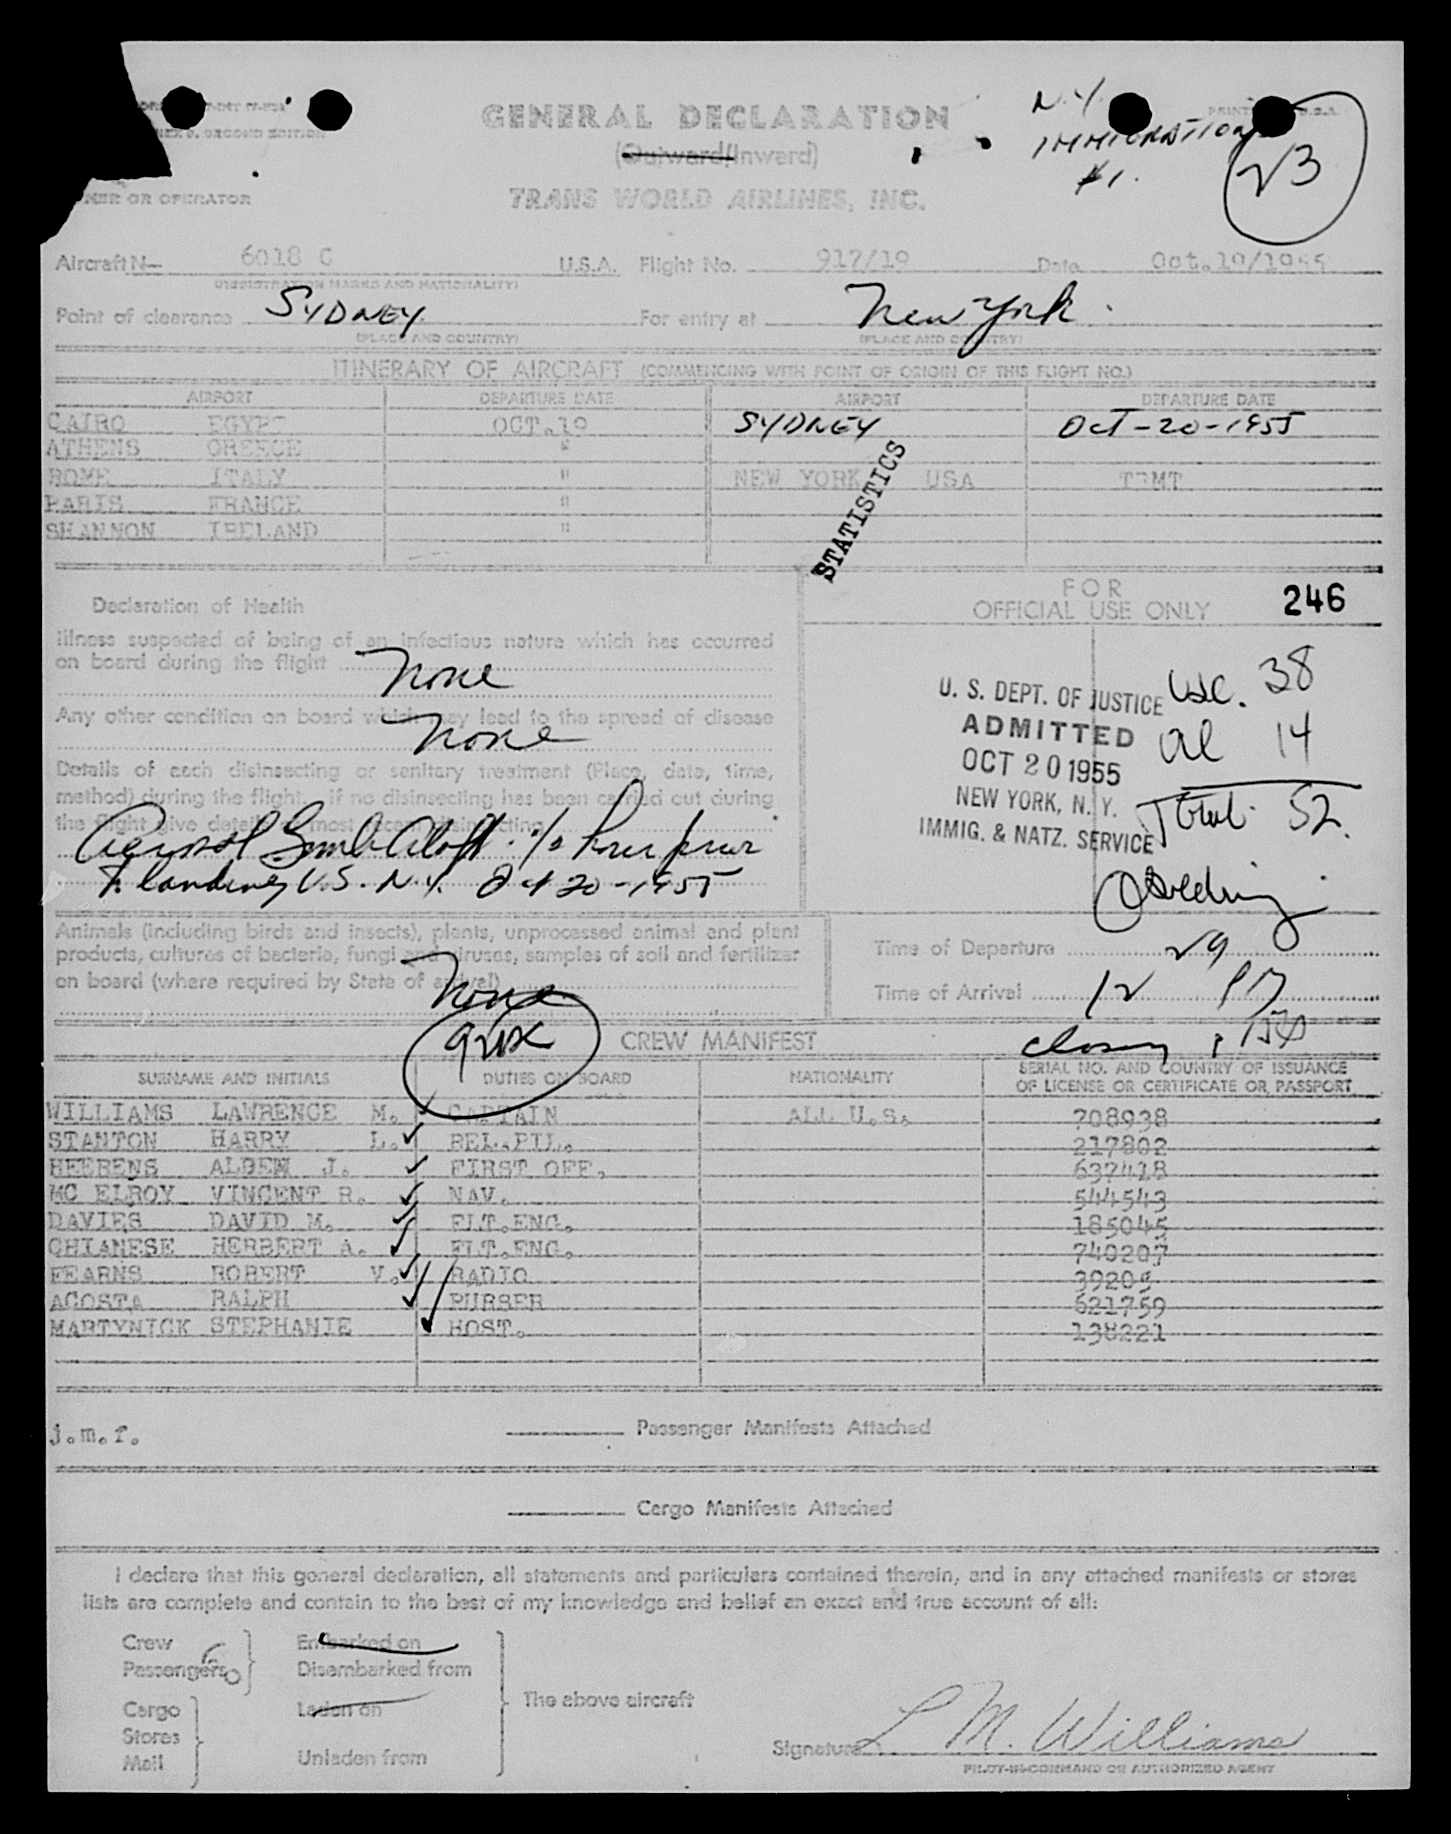 GENERAL DECLARATION
N.Y.
IMMIGRATION
#1.
(Outward/Inward)
OWNER OR OPERATOR
TRANS WORLD AIRLINES, INC.
Aircraft N— 6018 C U.S.A. Flight No. 917/19 Date Oct.19/1955
(REGISTRATION MARKS AND NATIONALITY)
Point of clearance SYDNEY For entry at New York.
(PLACE AND COUNTRY) (PLACE AND COUNTRY)
ITINERARY OF AIRCRAFT (COMMENCING WITH POINT OF ORIGIN OF THIS FLIGHT NO.)
AIRPORT DEPARTURE DATE AIRPORT DEPARTURE DATE
CAIRO EGYPT OCT.19 SYDNEY OCT-20-1955
ATHENS GREECE "
ROME ITALY " NEW YORK USA TRMT
PARIS FRANCE "
SHANNON IRELAND "
STATISTICS
Declaration of Health
FOR
OFFICIAL USE ONLY 246
Illness suspected of being of an infectious nature which has occurred
on board during the flight None
Any other condition on board which may lead to the spread of disease
None
Details of each disinsecting or sanitary treatment (Place, date, time,
method) during the flight. If no disinsecting has been carried out during
the flight give details of most recent disinsecting
Aerosol Bomb Aloft prior
landing U.S. N.Y. Oct 20-1955
U. S. DEPT. OF JUSTICE
ADMITTED
OCT 20 1955
NEW YORK, N. Y.
IMMIG. & NATZ. SERVICE
usc. 38
al 14
Total 52.
Animals (including birds and insects), plants, unprocessed animal and plant
products, cultures of bacteria, fungi and viruses, samples of soil and fertilizer
on board (where required by State of arrival)
None
Time of Departure
Time of Arrival
CREW MANIFEST
SURNAME AND INITIALS DUTIES ON BOARD NATIONALITY SERIAL NO. AND COUNTRY OF ISSUANCE
OF LICENSE OR CERTIFICATE OR PASSPORT
WILLIAMS LAWRENCE M. CAPTAIN ALL U.S. 708938
STANTON HARRY L. REL.PIL. 217802
HEERENS ALDEN J. FIRST OFF. 637418
MC ELROY VINCENT R. NAV. 544543
DAVIES DAVID M. FLT.ENG. 185045
CHIANESE HERBERT A. FLT.ENG. 740207
FEARNS ROBERT V. RADIO 39205
ACOSTA RALPH PURSER 621759
MARTYNICK STEPHANIE HOST. 138221
j.m.r.
Passenger Manifests Attached
Cargo Manifests Attached
I declare that this general declaration, all statements and particulars contained therein, and in any attached manifests or stores
lists are complete and contain to the best of my knowledge and belief an exact and true account of all:
Crew Embarked on
Passengers Disembarked from
Cargo Laden on The above aircraft
Stores
Mail Unladen from
Signature L M. Williams
PILOT-IN-COMMAND OR AUTHORIZED AGENT